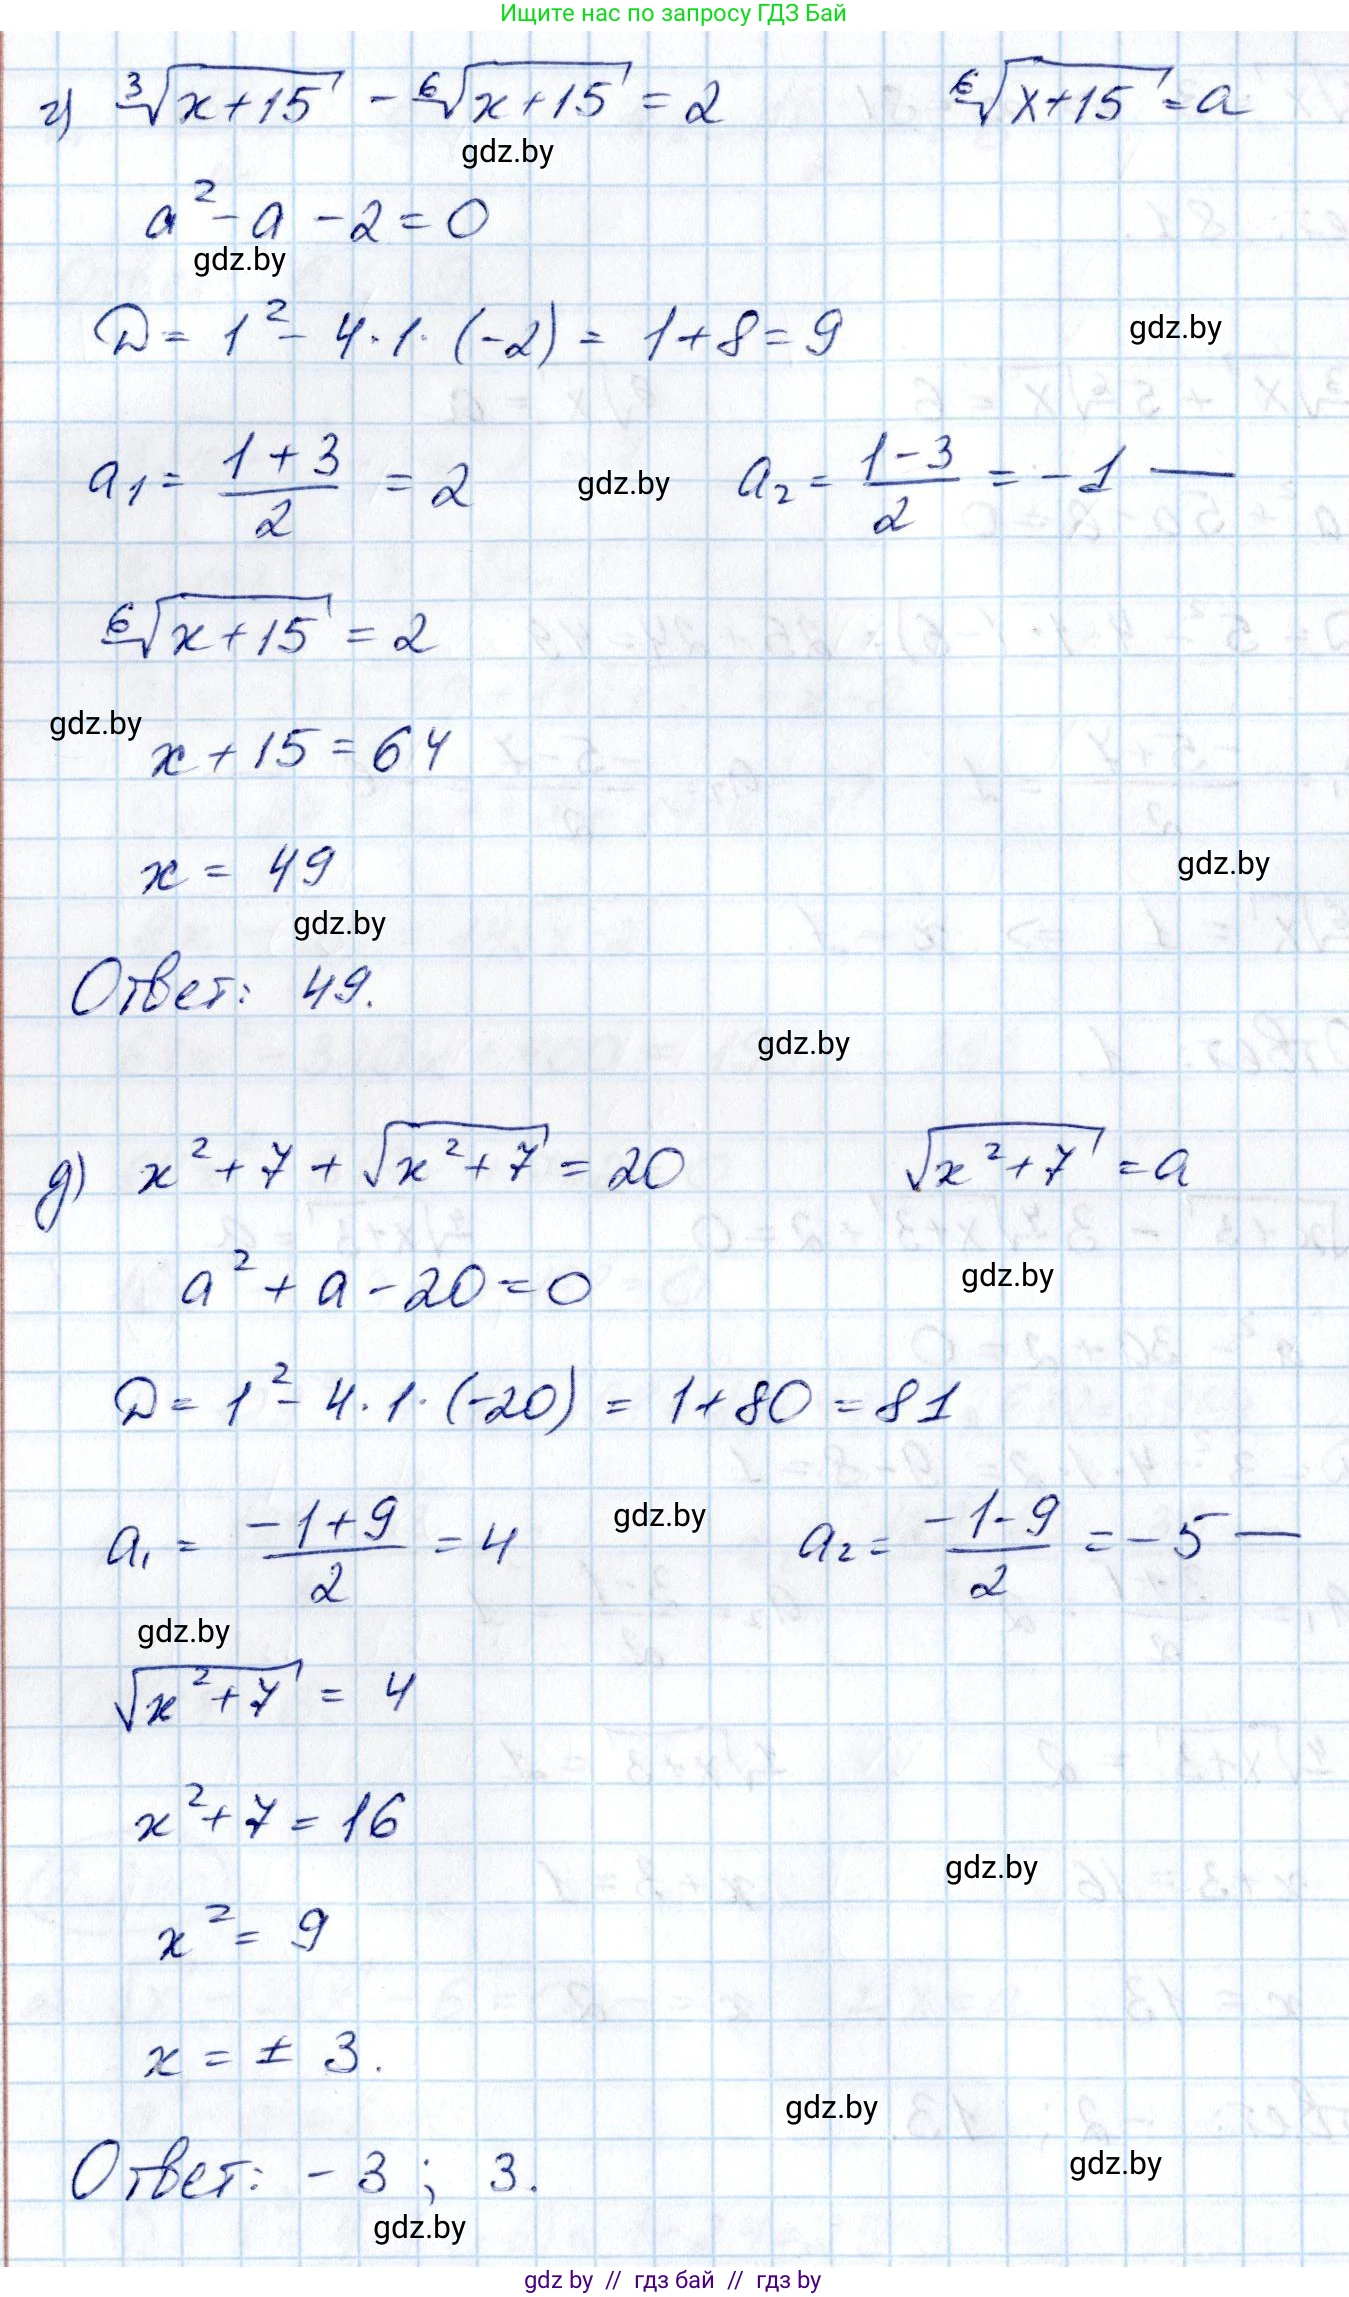 Ищите нас по запросу ГДЗ Бай
г) ∛(x+15) - ⁶√(x+15) = 2    ⁶√(x+15) = a
gdz.by
a² - a - 2 = 0
gdz.by
D = 1² - 4·1·(-2) = 1+8 = 9    gdz.by
a₁ = (1+3)/2 = 2    gdz.by    a₂ = (1-3)/2 = -1 —
⁶√(x+15) = 2
gdz.by
x+15 = 64
gdz.by
x = 49
gdz.by
Ответ: 49.
gdz.by
д) x²+7+√(x²+7) = 20    √(x²+7) = a
gdz.by
a² + a - 20 = 0
D = 1² - 4·1·(-20) = 1+80 = 81
a₁ = (-1+9)/2 = 4    gdz.by    a₂ = (-1-9)/2 = -5 —
gdz.by
√(x²+7) = 4
x²+7 = 16
gdz.by
x² = 9
x = ± 3.
gdz.by
Ответ: -3 ; 3.    gdz.by
gdz.by
gdz by // гдз бай // гдз by